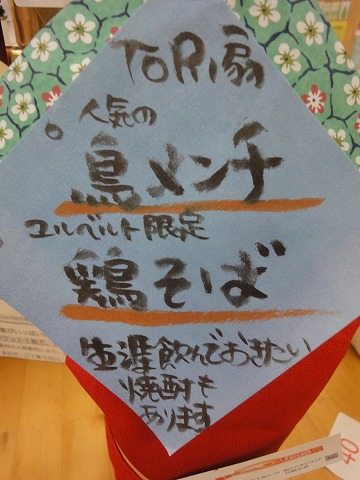 TORi扇
人気の
鳥メンチ
ユルベルト限定
鶏そば
生涯飲んでおきたい
焼酎も
あります